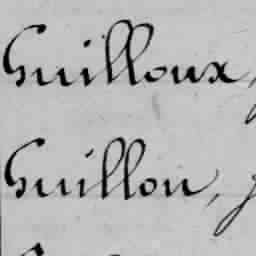 Guilloux,
Guillou,